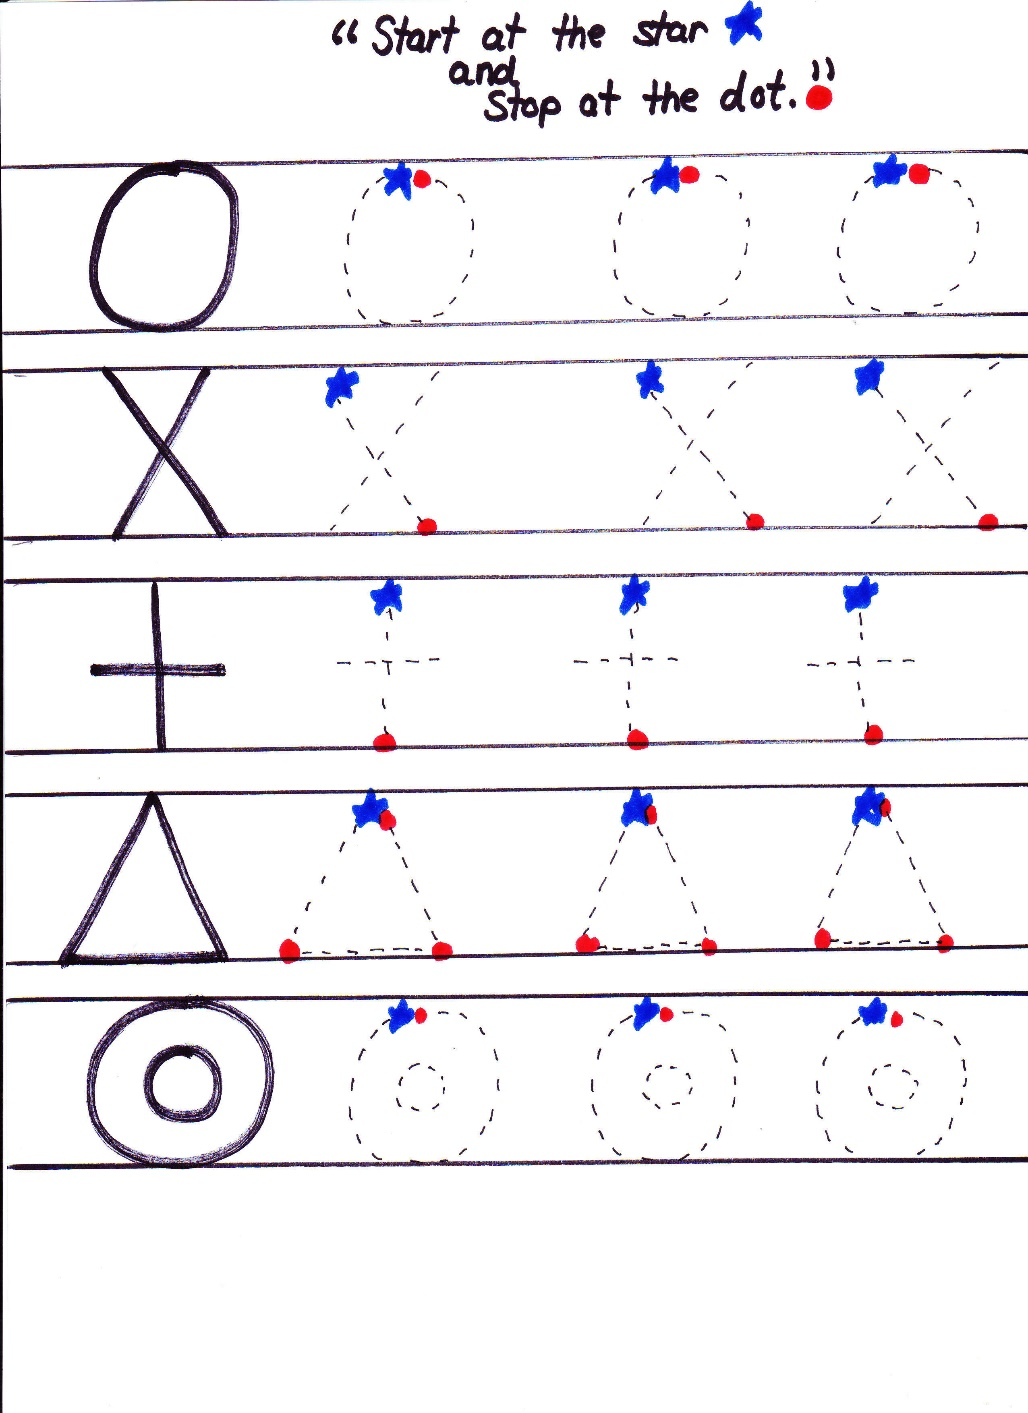 “Start at the star
and
Stop at the dot.”